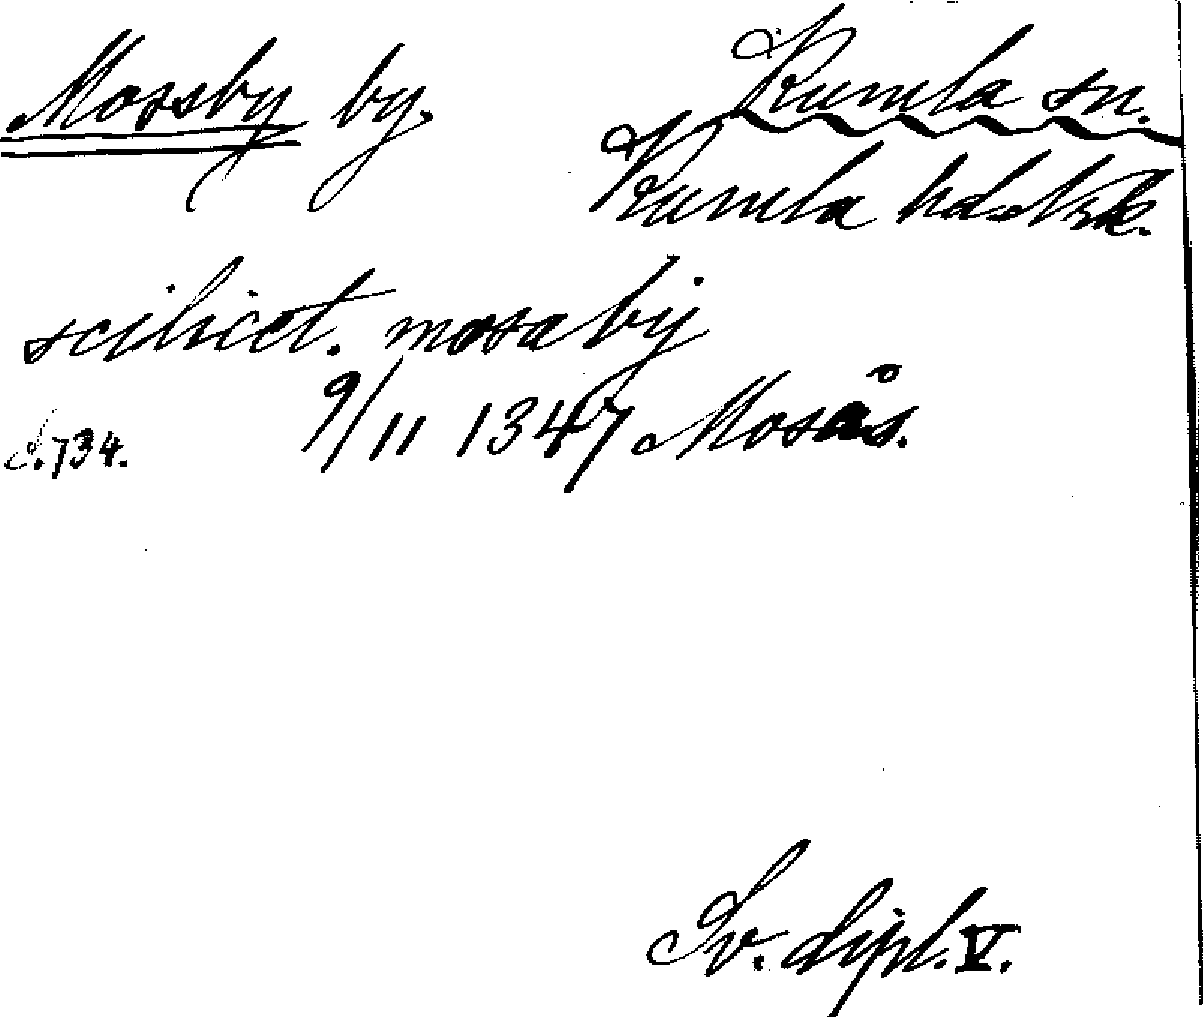 Mossby by.
Kumla sn.
Kumla hd. Nrk.
scilicet. mosaby
S. 734. 9/11 1347 Mosås.
Sv. dipl. V.